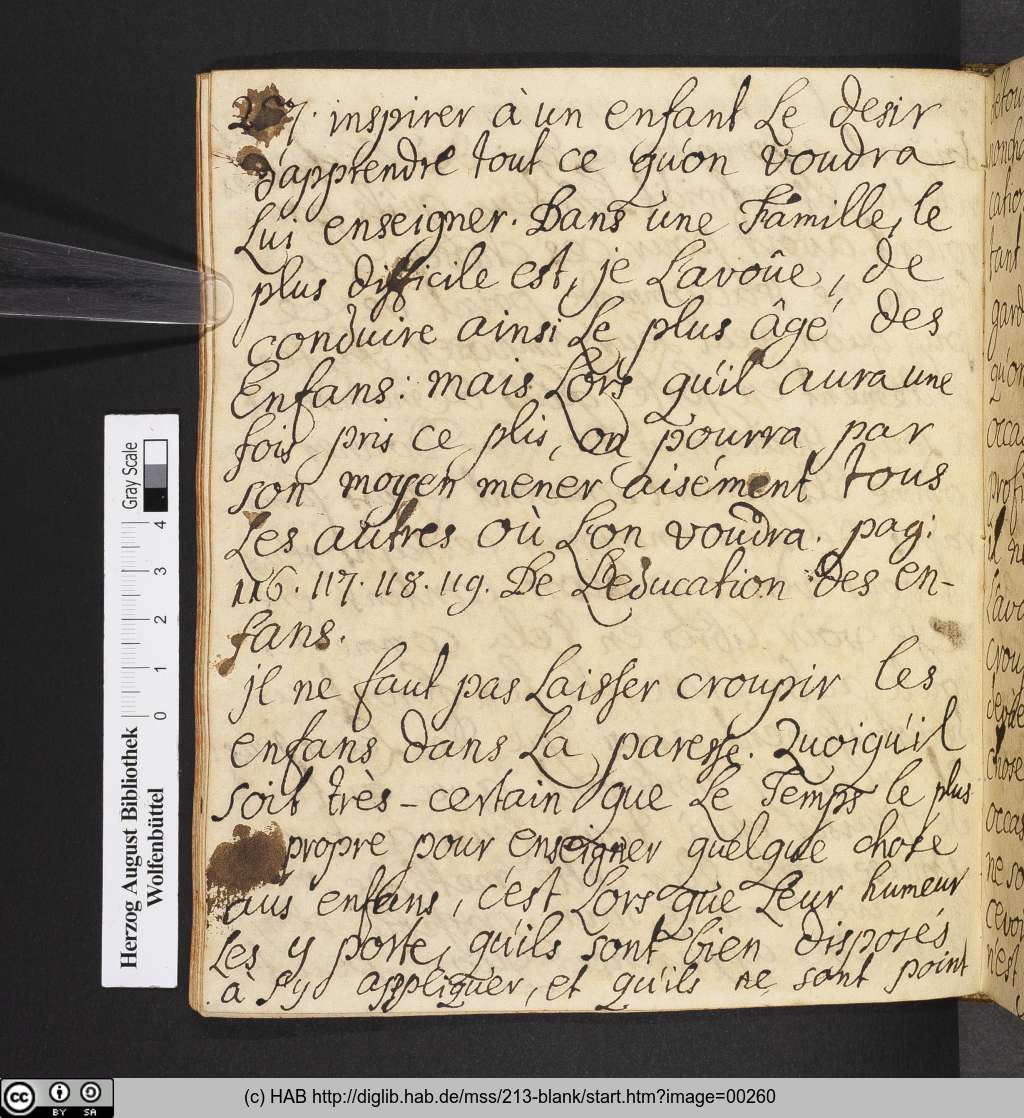 257. inspirer à un enfant Le desir
d'apprendre tout ce qu'on voudra
Lui enseigner. Dans une Famille, le
plus difficile est, je L'avoûe, de
conduire ainsi Le plus âgé des
Enfans: mais Lors qu'il aura une
fois pris ce plis, on pourra par
son moyen mener aisément tous
Les autres où L'on voudra. pag:
116. 117. 118. 119. De L'education des en-
fans.
jl ne faut pas Laisser croupir les
enfans dans La paresse. Quoiqu'il
soit très-certain que Le Temps le plus
propre pour enseigner quelque chose
aus enfans, c'est Lors que Leur humeur
Les y porte, qu'ils sont bien disposés
à s'y appliquer, et qu'ils ne sont point
Gray Scale
0 1 2 3 4
Herzog August Bibliothek
Wolfenbüttel
cc BY SA
(c) HAB http://diglib.hab.de/mss/213-blank/start.htm?image=00260